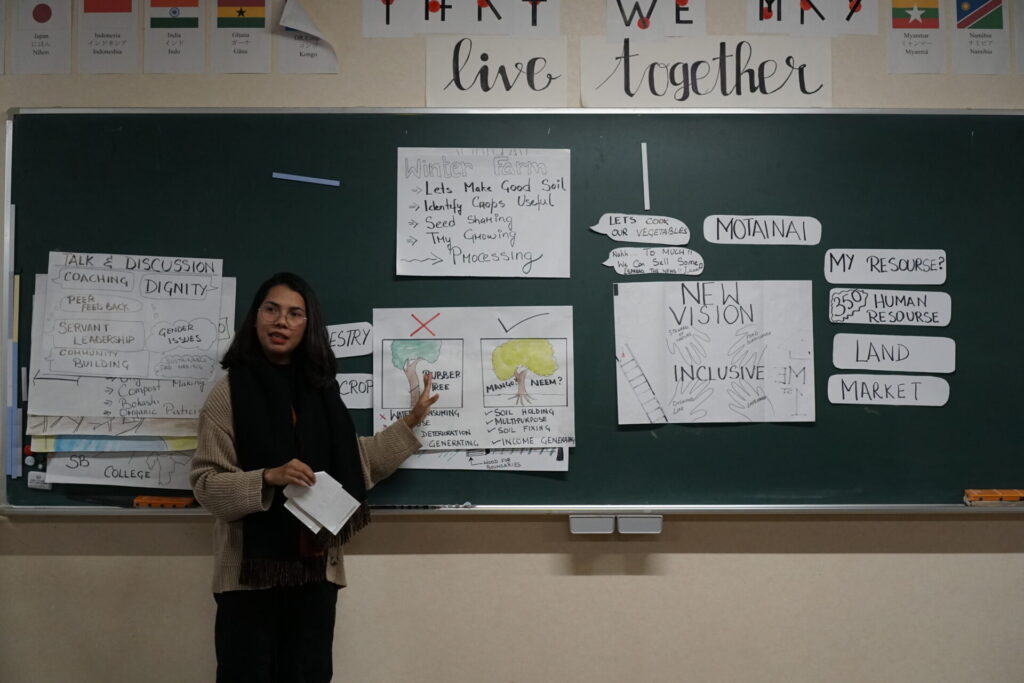 Japan
にほん
Nihon
Indonesia
インドネシア
Indoneshia
India
インド
Indo
Ghana
ガーナ
Gāna
Kongo
THAT WE MAY
live together
Myanmar
ミャンマー
Myanmā
Namibia
ナミビア
Namibia
Winter Farm
⇒ Lets Make Good Soil
⇒ Identify Crops Useful
⇒ Seed Sharing
⇒ Try Growing
⇒ Processing
LETS COOK
OUR VEGETABLES
Nahh.. To MUCH!!
We Can Sell Some
(SPREAD THE NEWS!!)
MOTAINAI
TALK & DISCUSSION
COACHING
DIGNITY
PEER
FEED BACK
SERVANT
LEADERSHIP
GENDER
ISSUES
COMMUNITY
BUILDING
Compost Making
Bokashi
Organic
SB
COLLEGE
ESTRY
CROP
RUBBER
TREE
MANGO? NEEM?
✓ SOIL HOLDING
✓ MULTIPURPOSE
✓ SOIL FIXING
✓ INCOME GENERATING
DETERIORATION
GENERATING
WOOD FOR
BOUNDARIES
NEW
VISION
INCLUSIVE
MY RESOURSE?
350 HUMAN
RESOURSE
LAND
MARKET